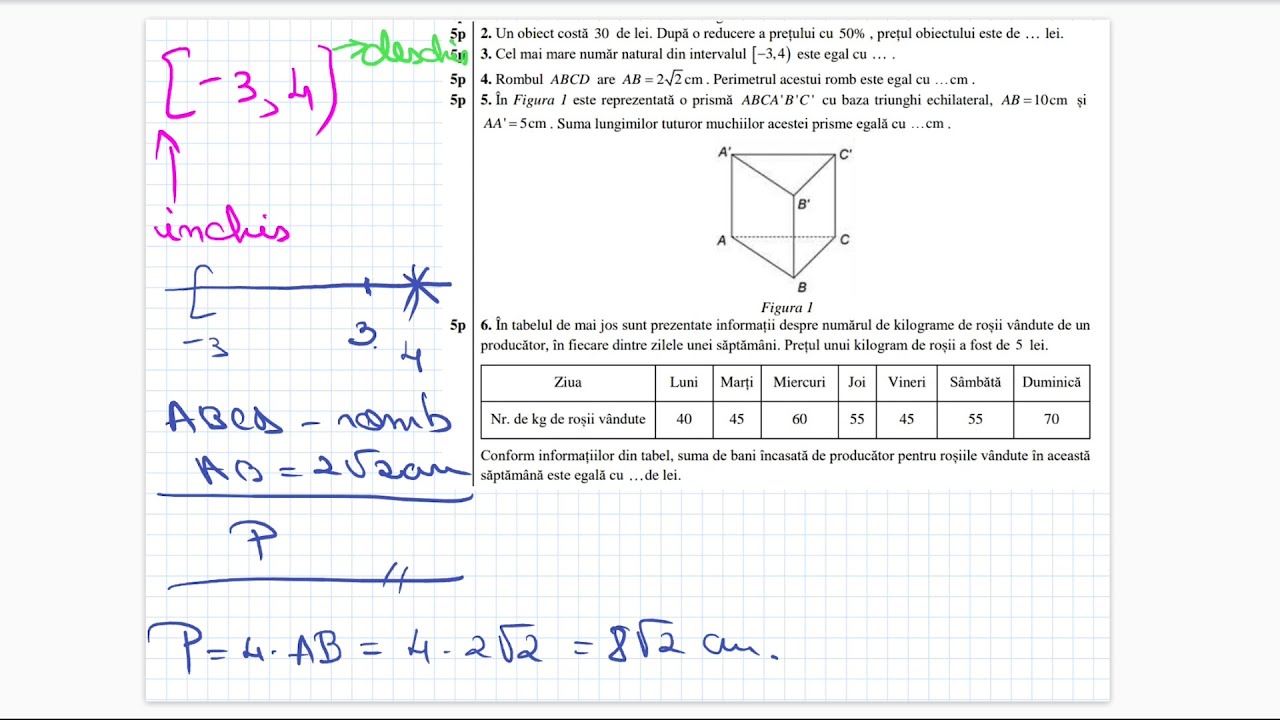 [-3, 4)
închis
[
-3 3. 4
ABCD - romb
AB = 2√2 cm
P
P = 4 · AB = 4 · 2√2 = 8√2 cm.
5p 2. Un obiect costă 30 de lei. După o reducere a prețului cu 50% , prețul obiectului este de … lei.
3. Cel mai mare număr natural din intervalul [−3,4) este egal cu … .
5p 4. Rombul ABCD are AB = 2√2 cm . Perimetrul acestui romb este egal cu …cm .
5p 5. În Figura 1 este reprezentată o prismă ABCA'B'C' cu baza triunghi echilateral, AB = 10cm și
AA' = 5cm . Suma lungimilor tuturor muchiilor acestei prisme egală cu …cm .
A' C'
B'
A C
B
Figura 1
5p 6. În tabelul de mai jos sunt prezentate informații despre numărul de kilograme de roșii vândute de un
producător, în fiecare dintre zilele unei săptămâni. Prețul unui kilogram de roșii a fost de 5 lei.
Ziua Luni Marți Miercuri Joi Vineri Sâmbătă Duminică
Nr. de kg de roșii vândute 40 45 60 55 45 55 70
Conform informațiilor din tabel, suma de bani încasată de producător pentru roșiile vândute în această
săptămână este egală cu …de lei.